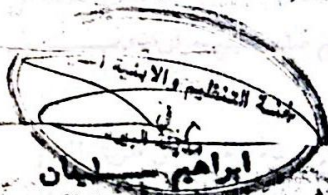 لجنة التنظيم والابنية
في
ابراهيم سليمان